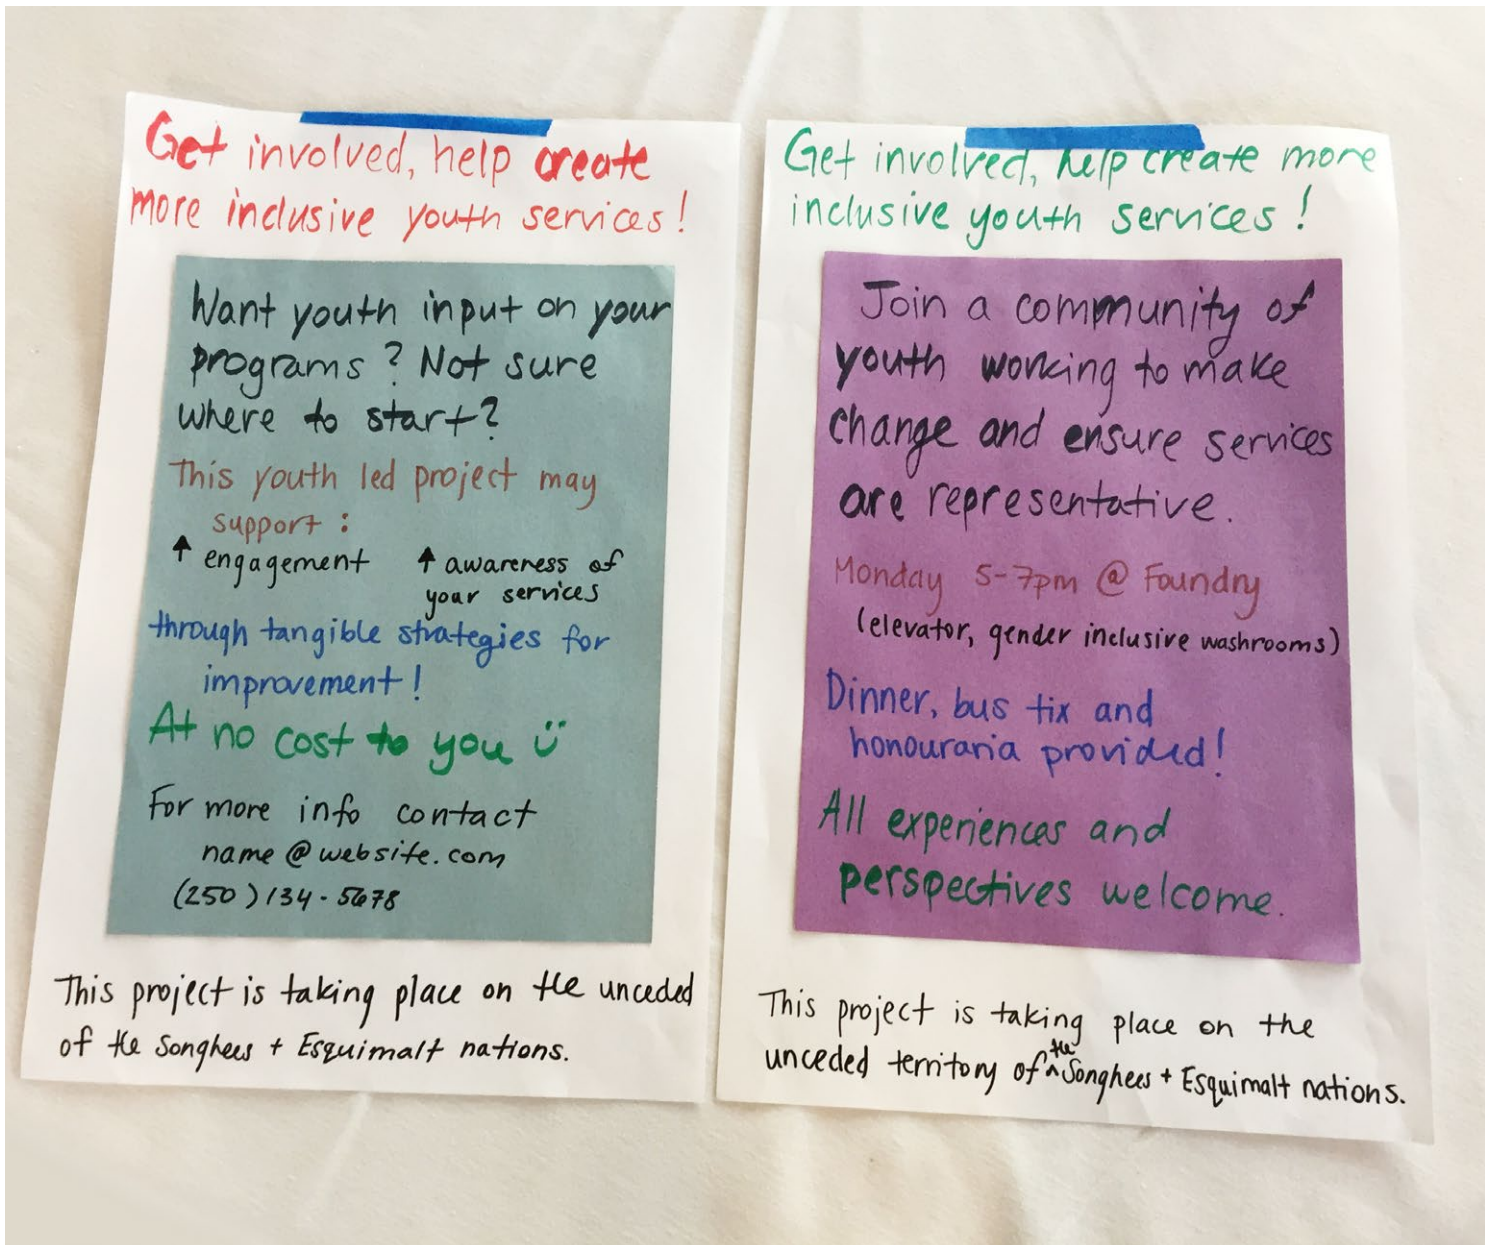 Get involved, help create
more inclusive youth services!
Want youth input on your
programs? Not sure
where to start?
This youth led project may
support:
↑ engagement ↑ awareness of
your services
through tangible strategies for
improvement!
At no cost to you ü
For more info contact
name@website.com
(250)134-5678
This project is taking place on the unceded
of the Songhees + Esquimalt nations.
Get involved, help create more
inclusive youth services!
Join a community of
youth working to make
change and ensure services
are representative.
Monday 5-7pm @ Foundry
(elevator, gender inclusive washrooms)
Dinner, bus tix and
honouraria provided!
All experiences and
perspectives welcome.
This project is taking place on the
unceded territory of ^the Songhees + Esquimalt nations.